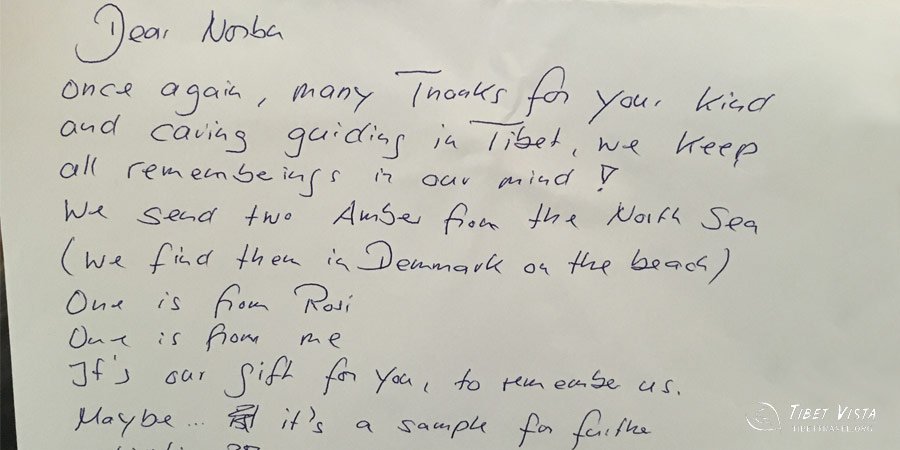 Dear Norbu
once again, many Thanks for your kind
and caring guiding in Tibet, we keep
all remembeings in our mind !
We send two Amber from the North Sea
(we find them in Denmark on the beach)
One is from Rosi
One is from me
It's our gift for you, to remember us.
Maybe... it's a sample for further
TIBET VISTA
TIBETTRAVEL.ORG